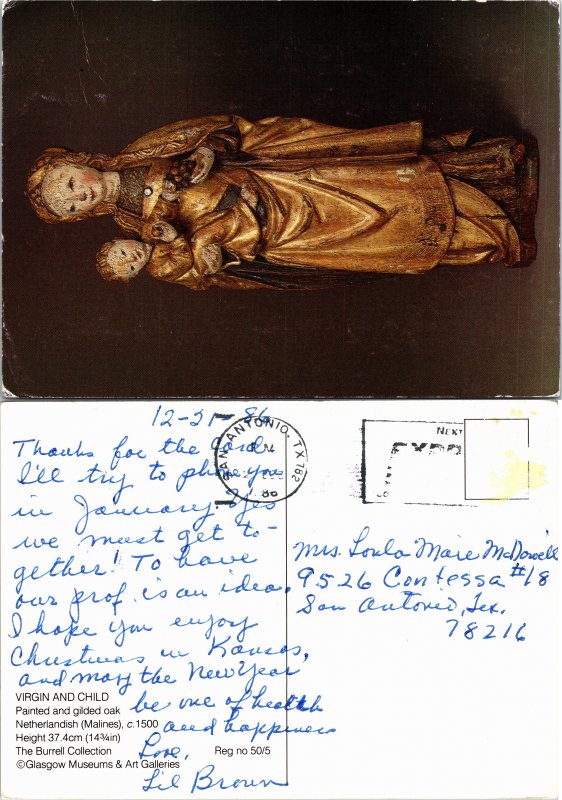 12-21-86
Thanks for the card
I'll try to phone you
in January. Yes
we must get to-
gether! To have
our prof. is an idea.
I hope you enjoy
Christmas in Kansas,
and may the New Year
be one of health
and happiness
Love,
Lil Brown
VIRGIN AND CHILD
Painted and gilded oak
Netherlandish (Malines), c.1500
Height 37.4cm (14¾in)
The Burrell Collection
Reg no 50/5
©Glasgow Museums & Art Galleries
SAN ANTONIO, TX 782
86
NEXT
Mrs. Loula Marie McDowell
9526 Contessa #18
San Antonio, Tex.
78216